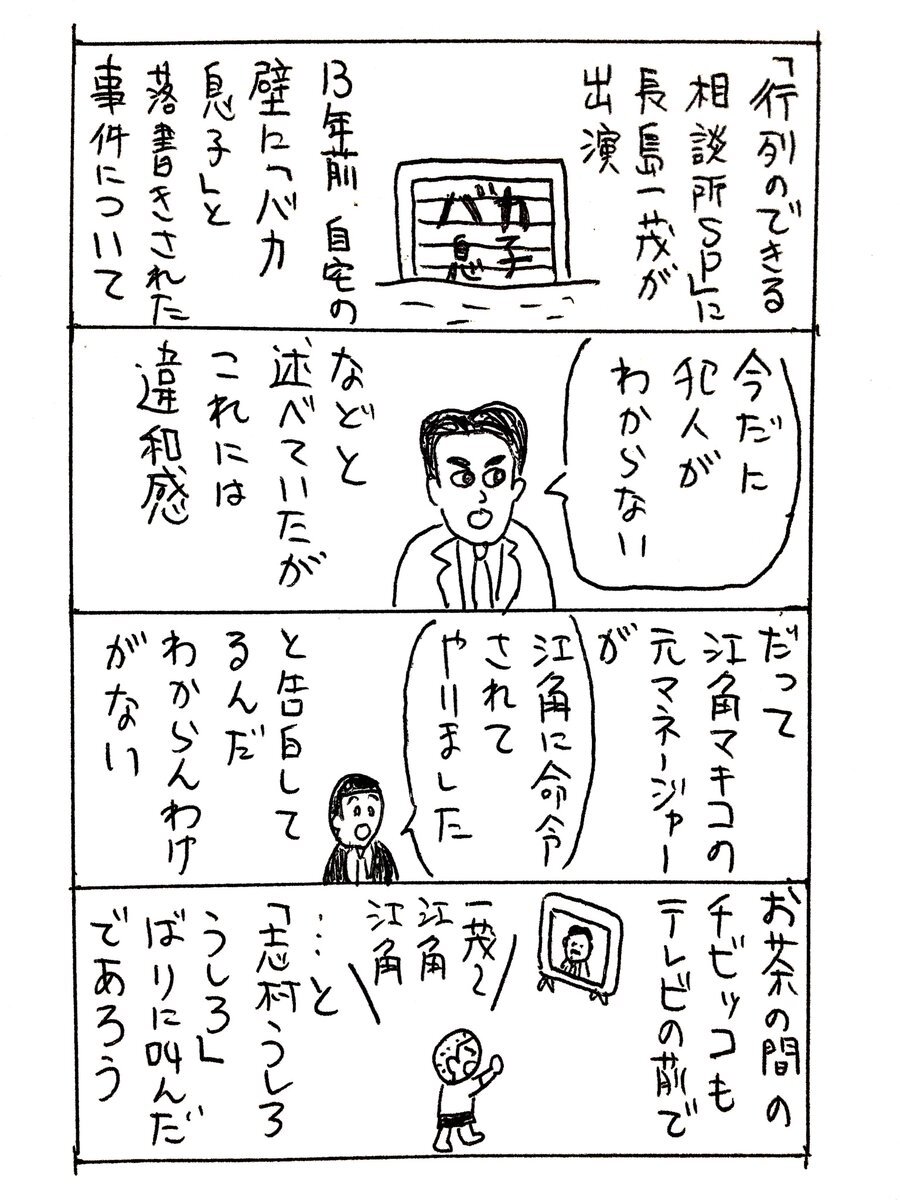 「行列のできる
相談所SP」に
長島一茂が
出演
バカ
息子
13年前、自宅の
壁に「バカ
息子」と
落書きされた
事件について
今だに
犯人が
わからない
などと
述べていたが
これには
違和感
だって
江角マキコの
元マネージャー
が
江角に命令
されて
やりました
と告白して
るんだ
わからんわけ
がない
お茶の間の
チビッコも
テレビの前で
一茂〜
江角
江角
…と
「志村うしろ
うしろ」
ばりに叫んだ
であろう